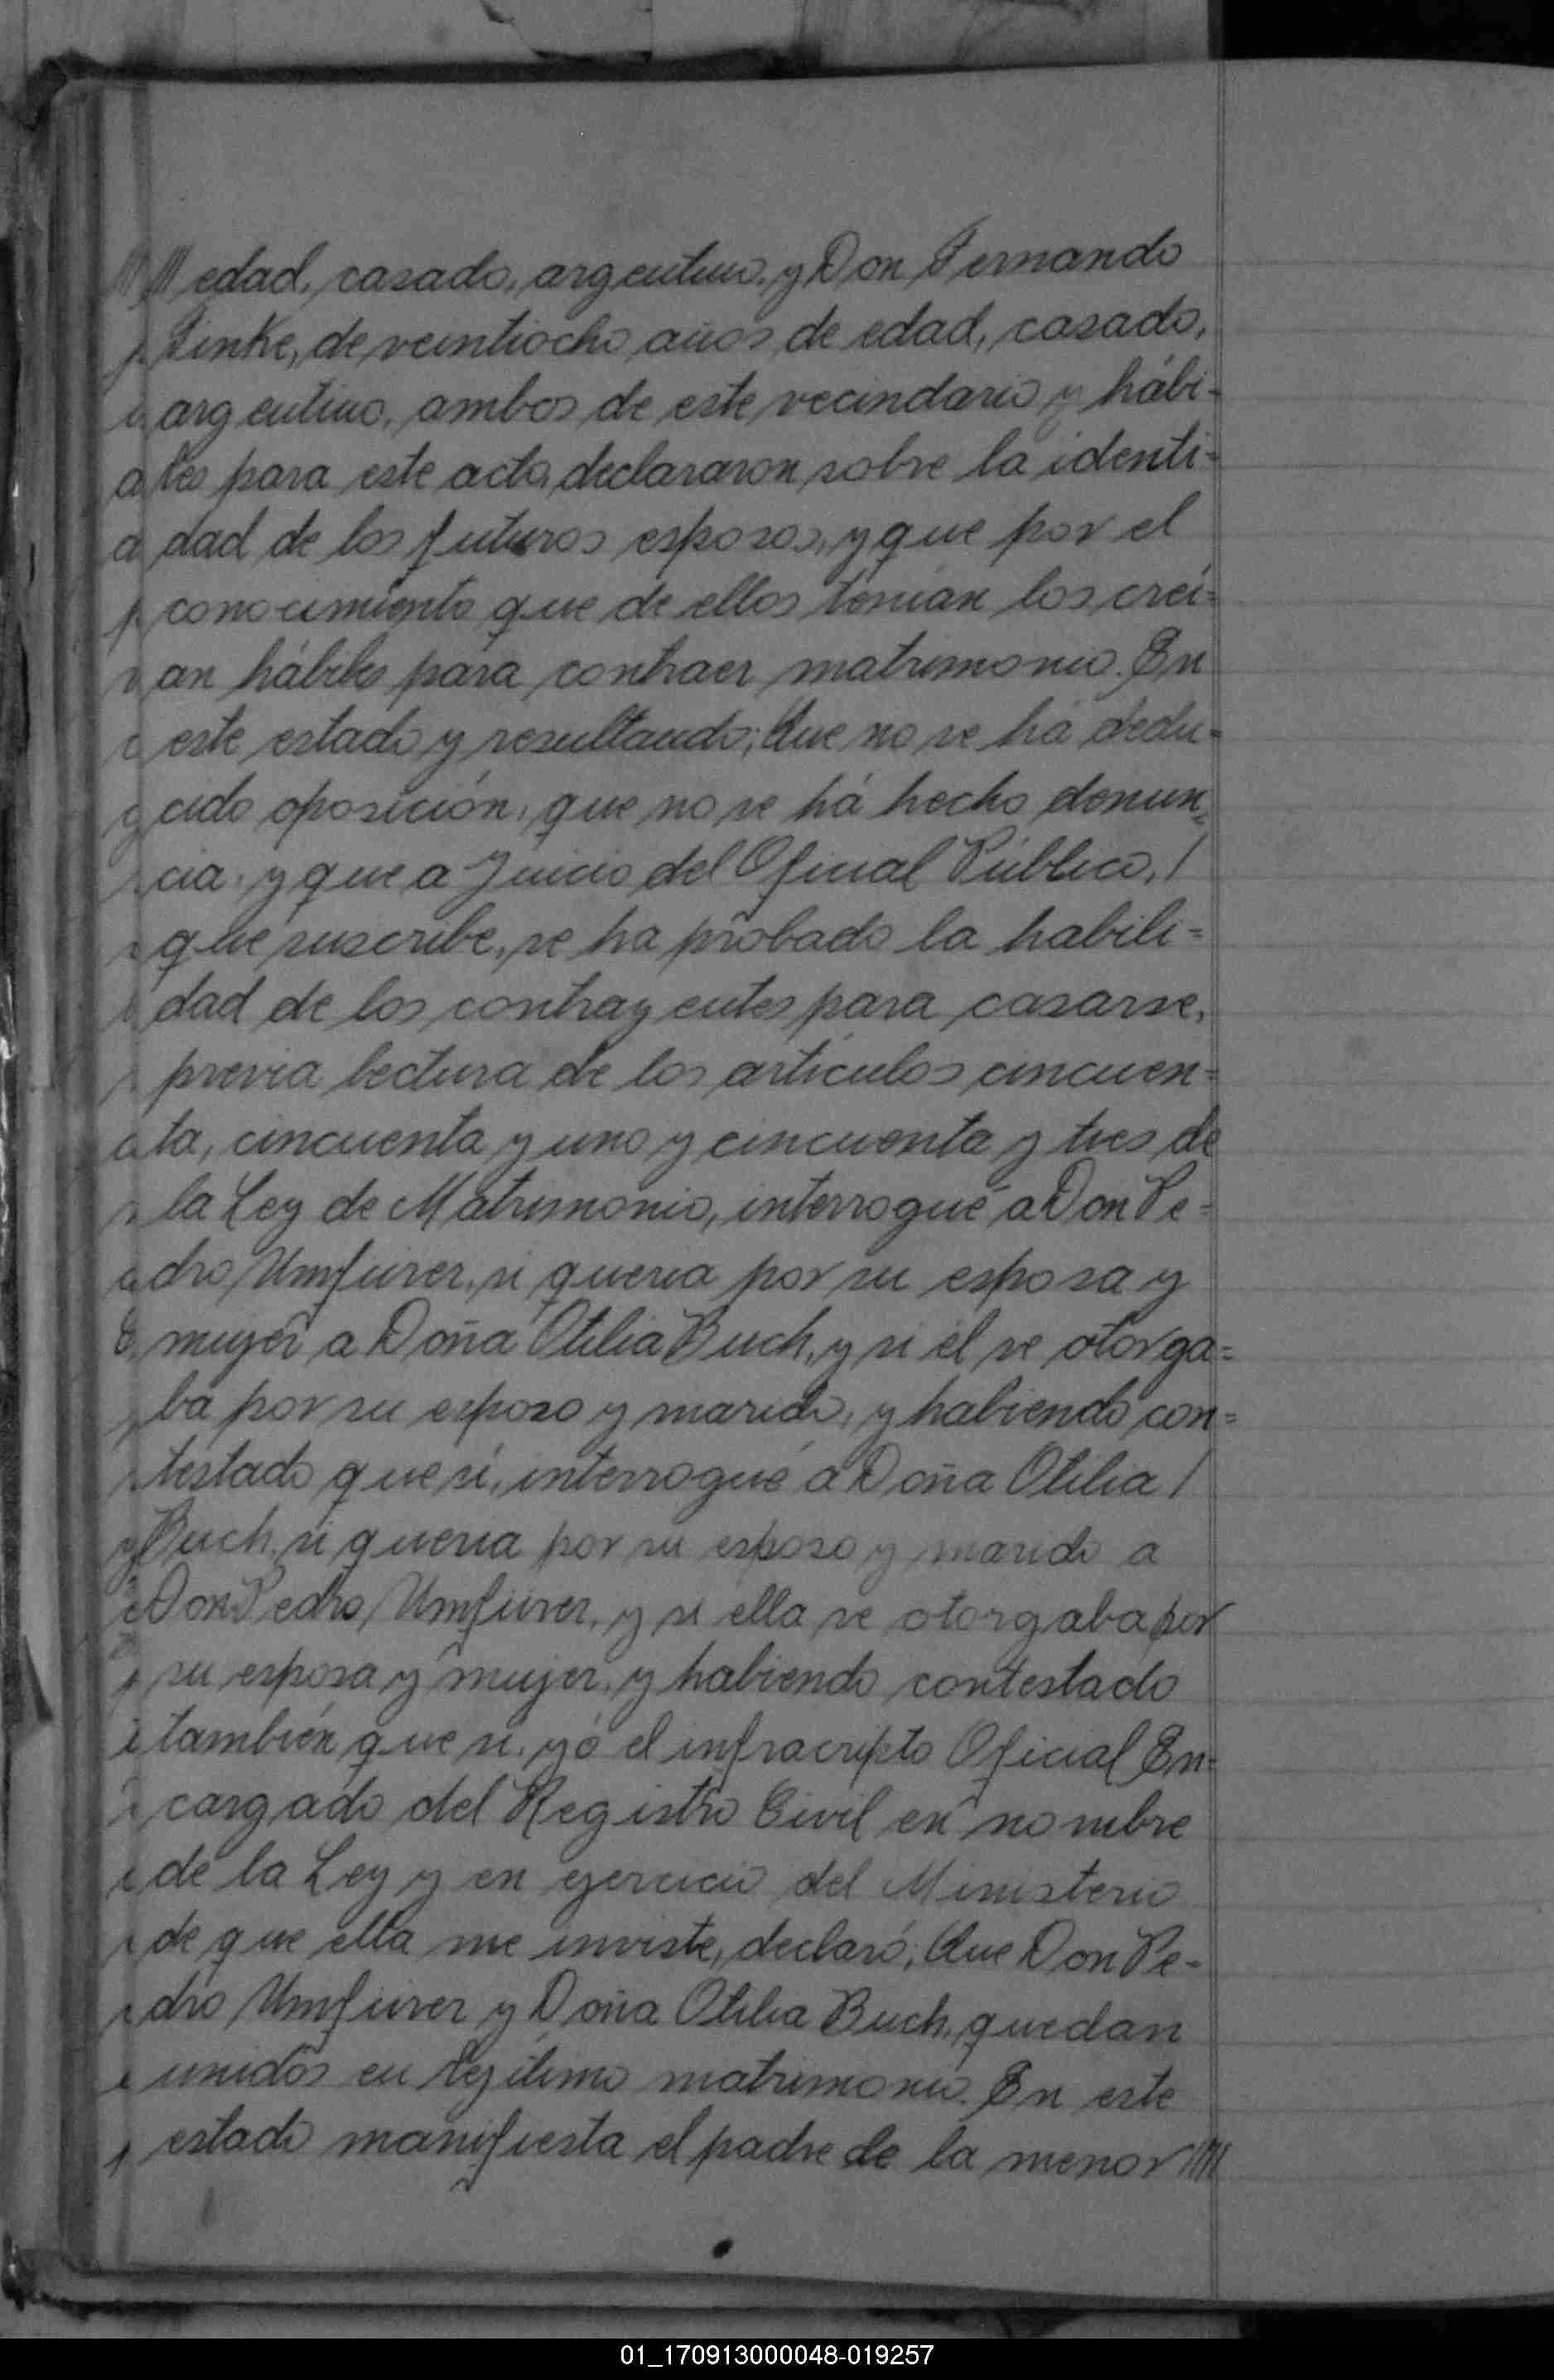 //// edad, casado, argentino, y Don Fernando
Finke, de veintiocho años de edad, casado,
argentino, ambos de este vecindario y hábi-
les para este acto, declararon sobre la identi-
dad de los futuros esposos, y que por el
conocimiento que de ellos tenían los creí-
an hábiles para contraer matrimonio. En
este estado y resultando; Que no se há dedu-
cido oposición, que no se há hecho denun-
cia, y que a Juicio del Oficial Público, /
que suscribe, se ha probado la habili-
dad de los contrayentes para casarse,
previa lectura de los artículos cincuen-
ta, cincuenta y uno y cincuenta y tres de
la Ley de Matrimonio, interrogué a Don Pe-
dro Umfurer, si quería por su esposa y
mujer a Doña Otilia Buch, y si él se otorga-
ba por su esposo y marido, y habiendo con-
testado que sí, interrogué a Doña Otilia /
Buch, si quería por su esposo y marido a
Don Pedro Umfurer, y si ella se otorgaba por
su esposa y mujer, y habiendo contestado
también que sí, yó el infracripto Oficial En-
cargado del Registro Civil en nombre
de la Ley y en ejercicio del Ministerio
de que ella me inviste, declaró; Que Don Pe-
dro Umfurer y Doña Otilia Buch, quedan
unidos en legítimo matrimonio. En este
estado manifiesta el padre de la menor ////
01_170913000048-019257